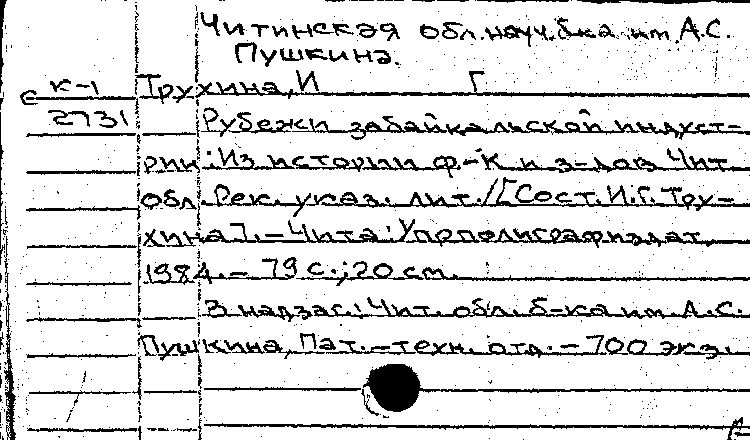 Читинская обл. науч. б-ка им. А.С.
Пушкина.
К-1 Трухина, И Г
с 2731
Рубежи забайкальской индуст-
рии: Из истории ф-к и з-дов Чит.
обл. Рек. указ. лит. /[Сост. И.Г. Тру-
хина]. – Чита: Упрполиграфиздат,
1984. – 79 с.; 20 см.
В надзаг.: Чит. обл. б-ка им А.С.
Пушкина, Пат.-техн. отд. – 700 экз.